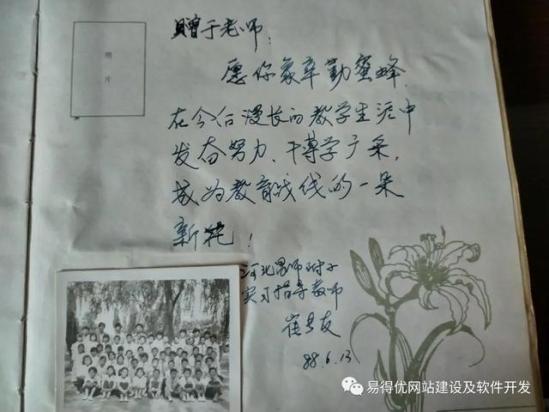 赠于老师：
照片
愿你象辛勤蜜蜂,
在今后漫长的教学生涯中
发奋努力、博学广采,
成为教育战线的一朵
新花！
河北昌师附小
实习指导教师
崔友
88.6.13
易得优网站建设及软件开发